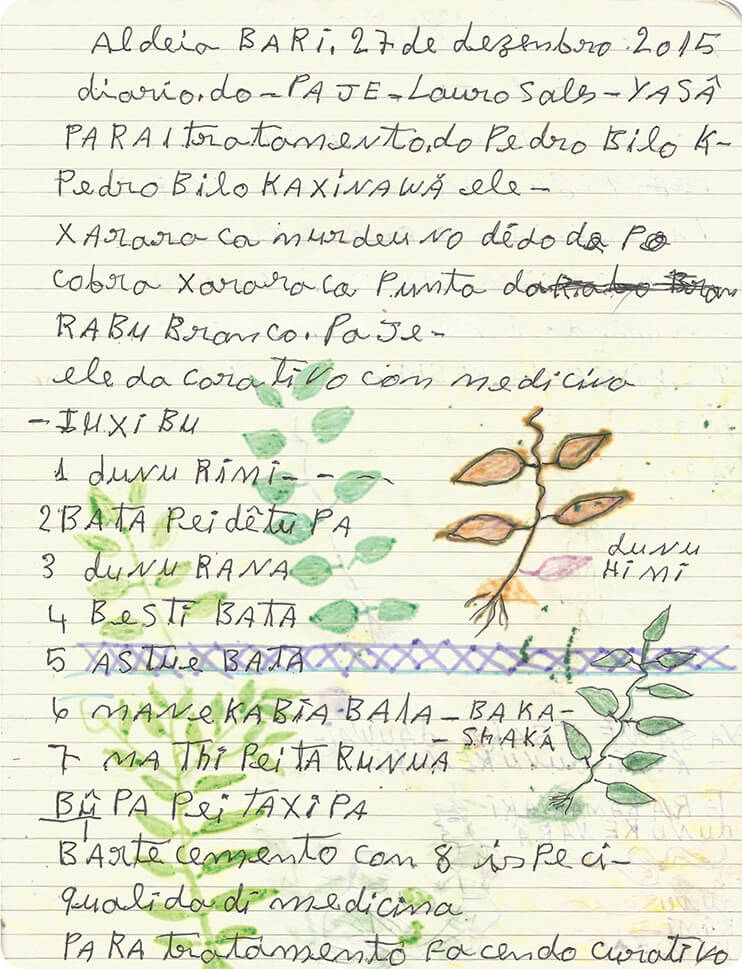 Aldeia BARI, 27 de dezenbro 2015
diario, do - PAJE - Lauro Sales - YASÂ
PARA 1 tratamento, do Pedro Bilo K-
Pedro Bilo KAXINAWÃ ele -
XArara ca murdeu no dêdo da Pe
cobra Xararaca Punta da
RABU Branco. PaJe -
ele da corativo con medicina
- IUXIBU
1 dunu RIMI - - - -
2 BATA Pei dêtu PA
3 dunu RANA
dunu
HIMI
4 BeSTI BATA
5 ASTUE BATA
6 MANE KABIA BAIA - BAKA -
- SHAKÁ
7 MA THI PeITA RUNUA
BÛ PA PeI TAXI PA
BArte cemento con 8 ispeci -
qualida di medicina
PARA tratámento facendo curativo